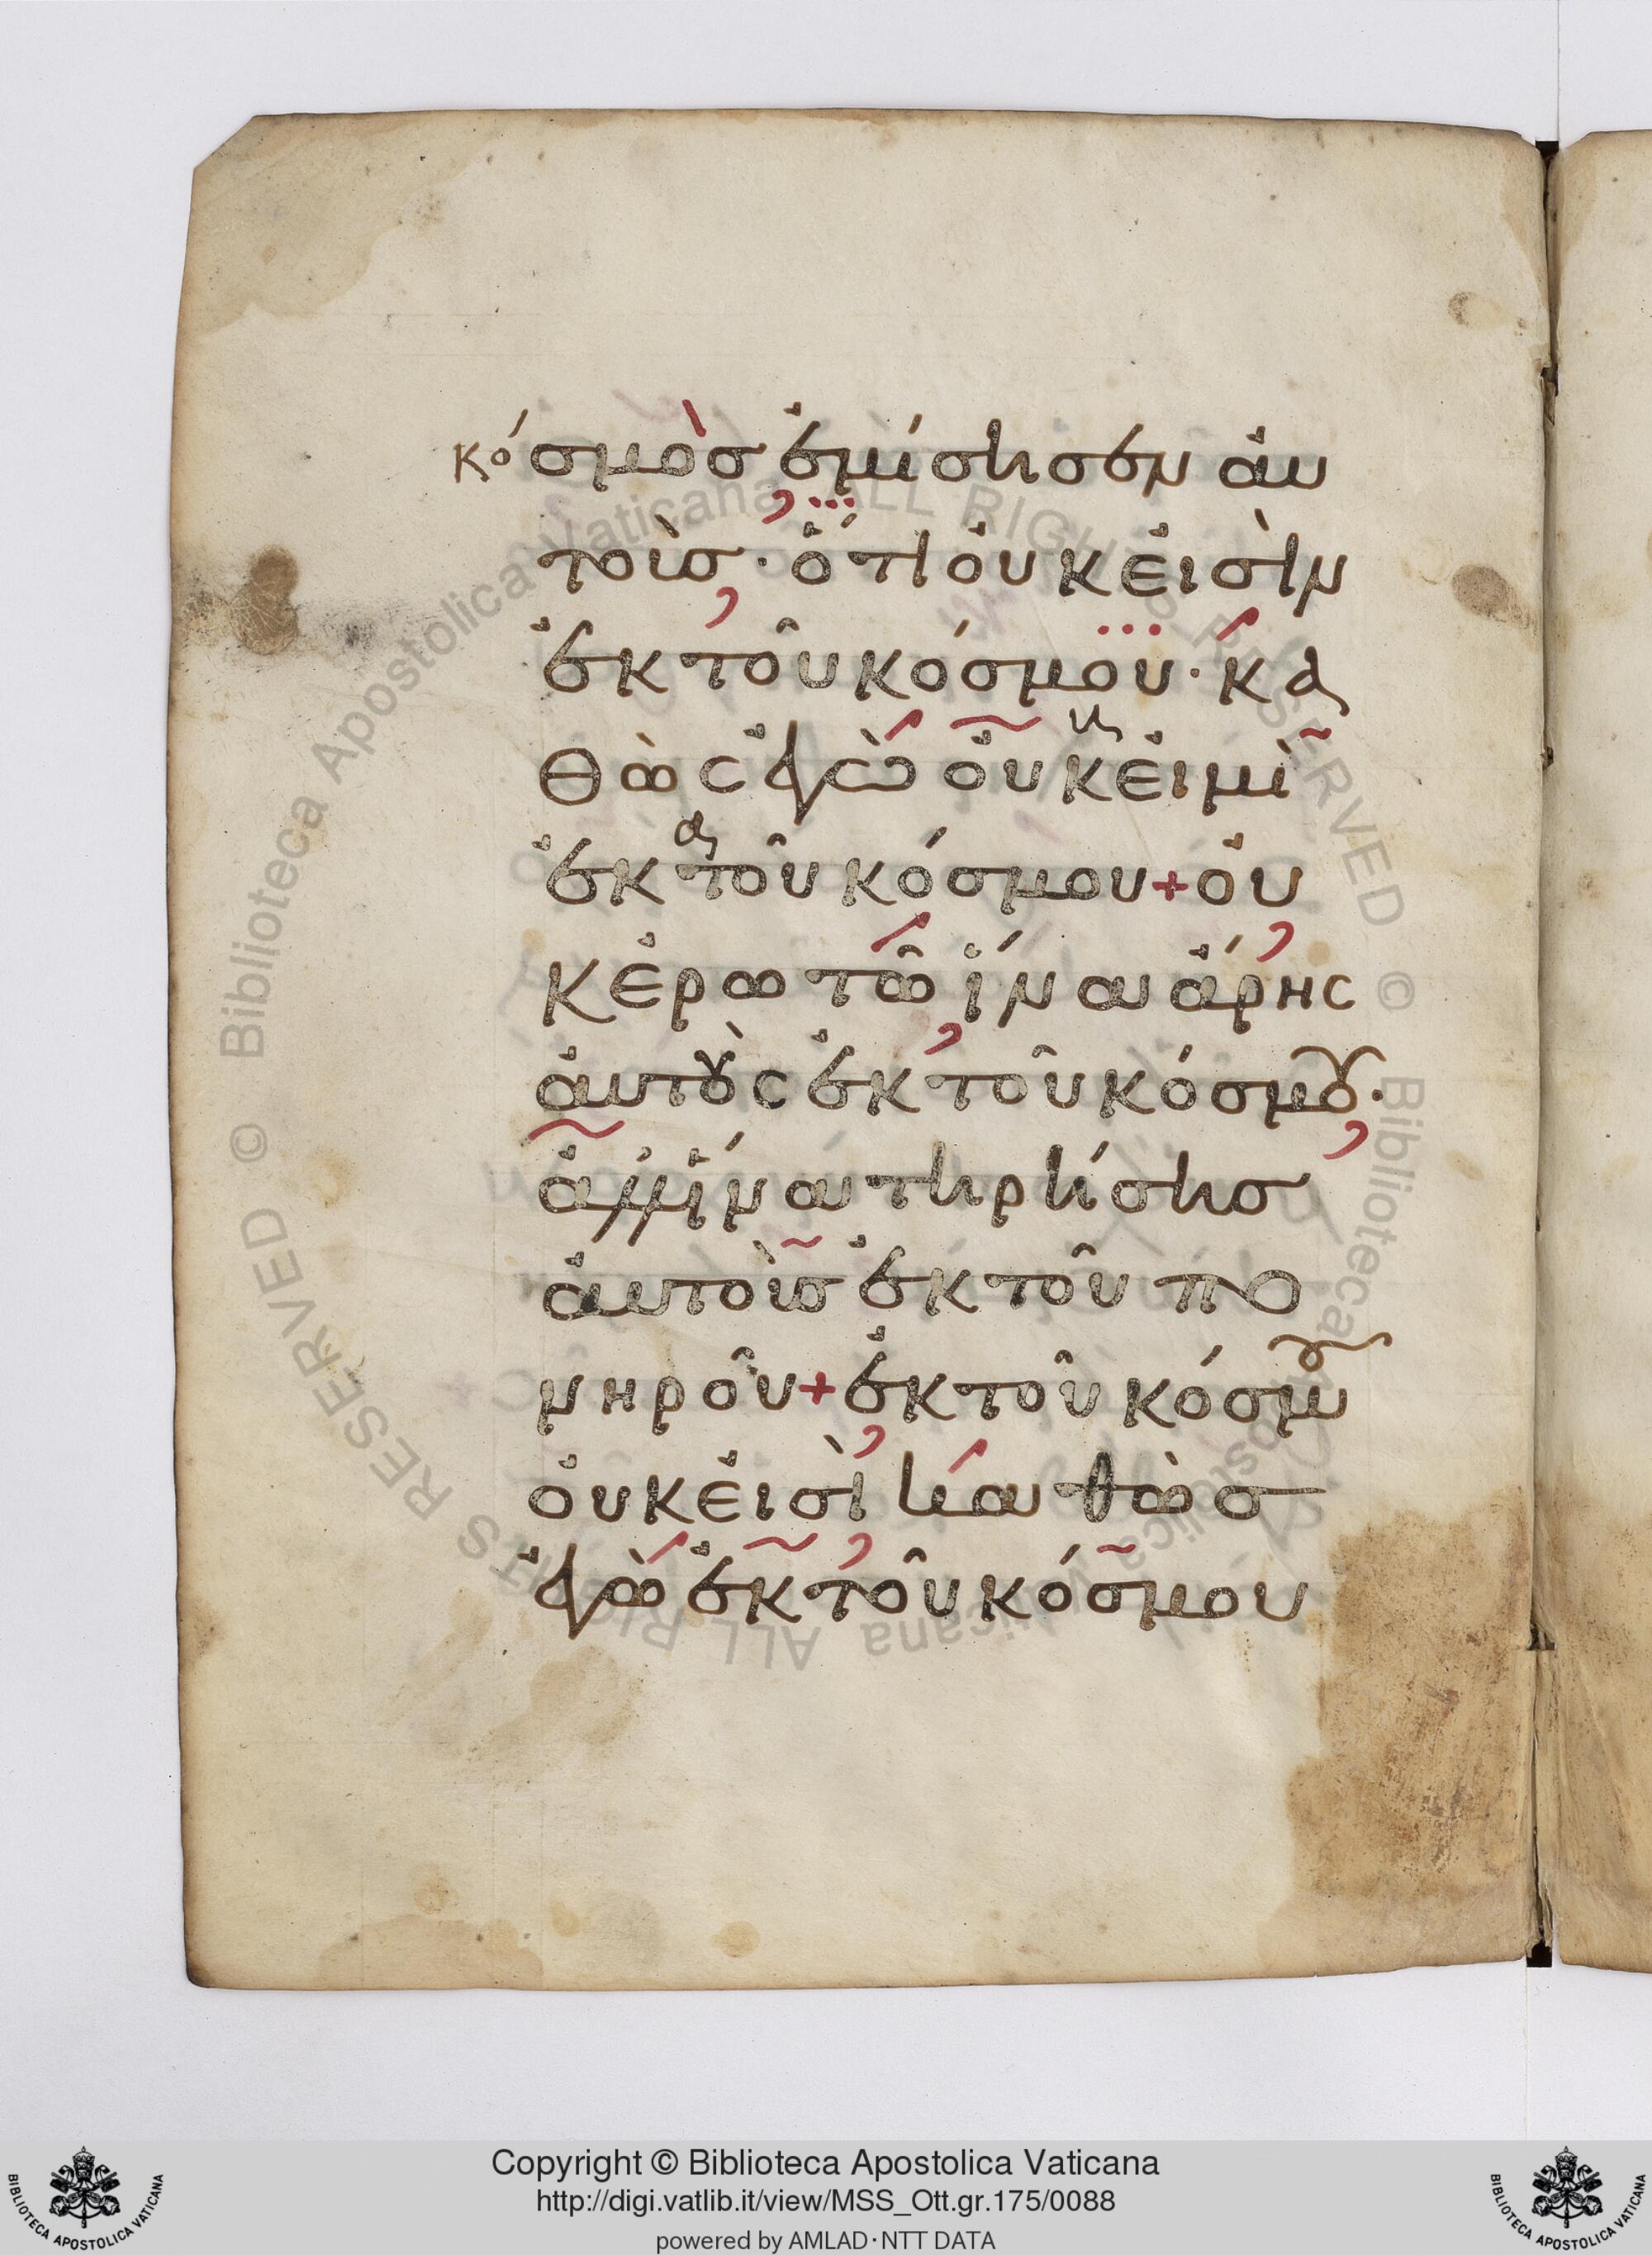 κόσμος ἐμίσησεν ἀυ
τοὺσ· ὅτι ὀυκ ἐισὶν
ἐκ τοῦ κόσμου· κα
θὼς ἐγὼ ὀυκ ἐιμὶ
ἐκ τοῦ κόσμου + ὀυ
κ ἐρωτῶ ἵνα ἄρης
ἀυτοὺς ἐκ τοῦ κόσμου·
ἀλλ' ἵνα τηρήσησ
ἀυτοὺσ ἐκ τοῦ πο
νηροῦ + ἐκ τοῦ κόσμου
ὀυκ ἐισὶ καθὼσ
ἐγὼ ἐκ τοῦ κόσμου
Copyright © Biblioteca Apostolica Vaticana
http://digi.vatlib.it/view/MSS_Ott.gr.175/0088
powered by AMLAD·NTT DATA
BIBLIOTECA APOSTOLICA VATICANA
BIBLIOTECA APOSTOLICA VATICANA